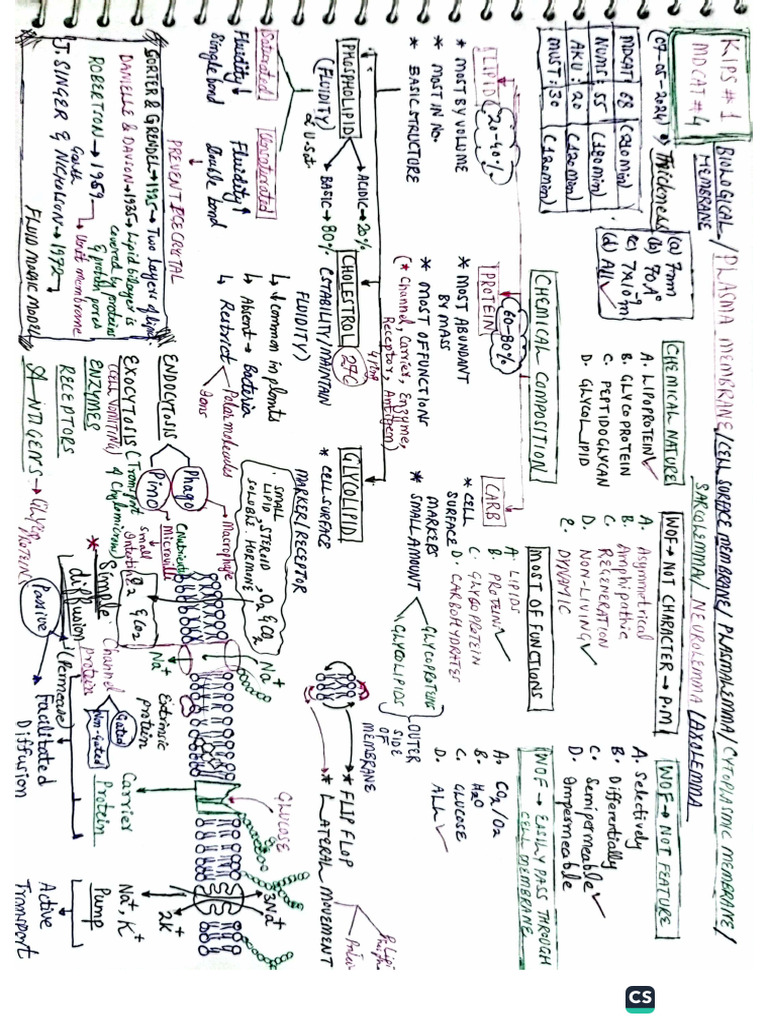 KIPS # 1
MDCAT # 4
BIOLOGICAL / PLASMA MEMBRANE / CELL SURFACE MEMBRANE / PLASMALEMMA / CYTOPLASMIC MEMBRANE /
MEMBRANE
SARCOLEMMA / NEUROLEMMA / AXOLEMMA
(07-05-2024)
Thickness
(a) 7nm
(b) 70A°
(c) 7x10⁻⁹m
(d) All ✓
MDCAT 68 (210min)
NUMS: 55 (180min)
AKU: 20 (120min)
MUST: 30 (120min)
CHEMICAL NATURE
A. LIPOPROTEIN ✓
B. GLYCOPROTEIN
C. PEPTIDOGLYCAN
D. GLYCOLIPID
WOF → NOT CHARACTER → P.M
A. Asymmetrical
B. Amphipathic
C. REGENERATION
D. NON-LIVING ✓
E. DYNAMIC
WOF → NOT FEATURE
A. Selectively
B. Differentially
C. Semipermeable ✓
D. Impermeable
CHEMICAL COMPOSITION
LIPID 20-40%
* MOST BY VOLUME
* MOST IN NO.
* BASIC STRUCTURE
PROTEIN 60-80%
* MOST ABUNDANT
BY MASS
* MOST OF FUNCTIONS
(* Channel, Carrier, Enzyme,
Receptor, Antigen)
CARB
* CELL
SURFACE
MARKERS
* SMALL AMOUNT
GLYCOPROTEINS
GLYCOLIPIDS
OUTER
SIDE
OF
MEMBRANE
MOST OF FUNCTIONS
A. LIPIDS
B. PROTEIN ✓
C. GLYCOPROTEIN
D. CARBOHYDRATES
WOF → EASILY PASS THROUGH
CELL MEMBRANE
A. CO2/O2
B. H2O
C. GLUCOSE
D. ALL ✓
PHOSPHOLIPID
(FLUIDITY)
ACIDIC → 20%
BASIC → 80%
Saturated
Fluidity ↓
Single bond
Unsaturated
Fluidity ↑
Double bond
PREVENT ICE CRYSTAL
CHOLESTROL 27C
(STABILITY/MAINTAIN
FLUIDITY)
↳ ↓ common in plants
↳ Absent → Bacteria
↳ Restrict
Polar molecules
Ions
GLYCOLIPID
* CELL SURFACE
MARKER / RECEPTOR
* FLIP FLOP
* LATERAL MOVEMENT
GORTER & GRENDEL → 1925 → Two layers of lipid.
DANIELLE & DAVSON → 1935 → Lipid bilayer is
covered by proteins
& protein pores
ROBERTSON → 1959 → Unit membrane
J. SINGER & NICHOLSON → 1972 →
FLUID MOSAIC MODEL
ENDOCYTOSIS
Phago
Macrophage
Pino
Microvilli
small
intestine
EXOCYTOSIS
(CELL VOMITING)
ENZYMES
RECEPTORS
ANTIGENS
SMALL
LIPID, STEROID, O2 & CO2
SOLUBLE HORMONE
O2 & CO2
* Simple
diffusion
Passive
Na+
Na+
Channel
protein
Gated
Non-Gated
(Permease)
Facilitated
Diffusion
Extrinsic
protein
GLUCOSE
Carrier
Protein
3Na+
2K+
Na+, K+
Pump
Active
Transport
CS